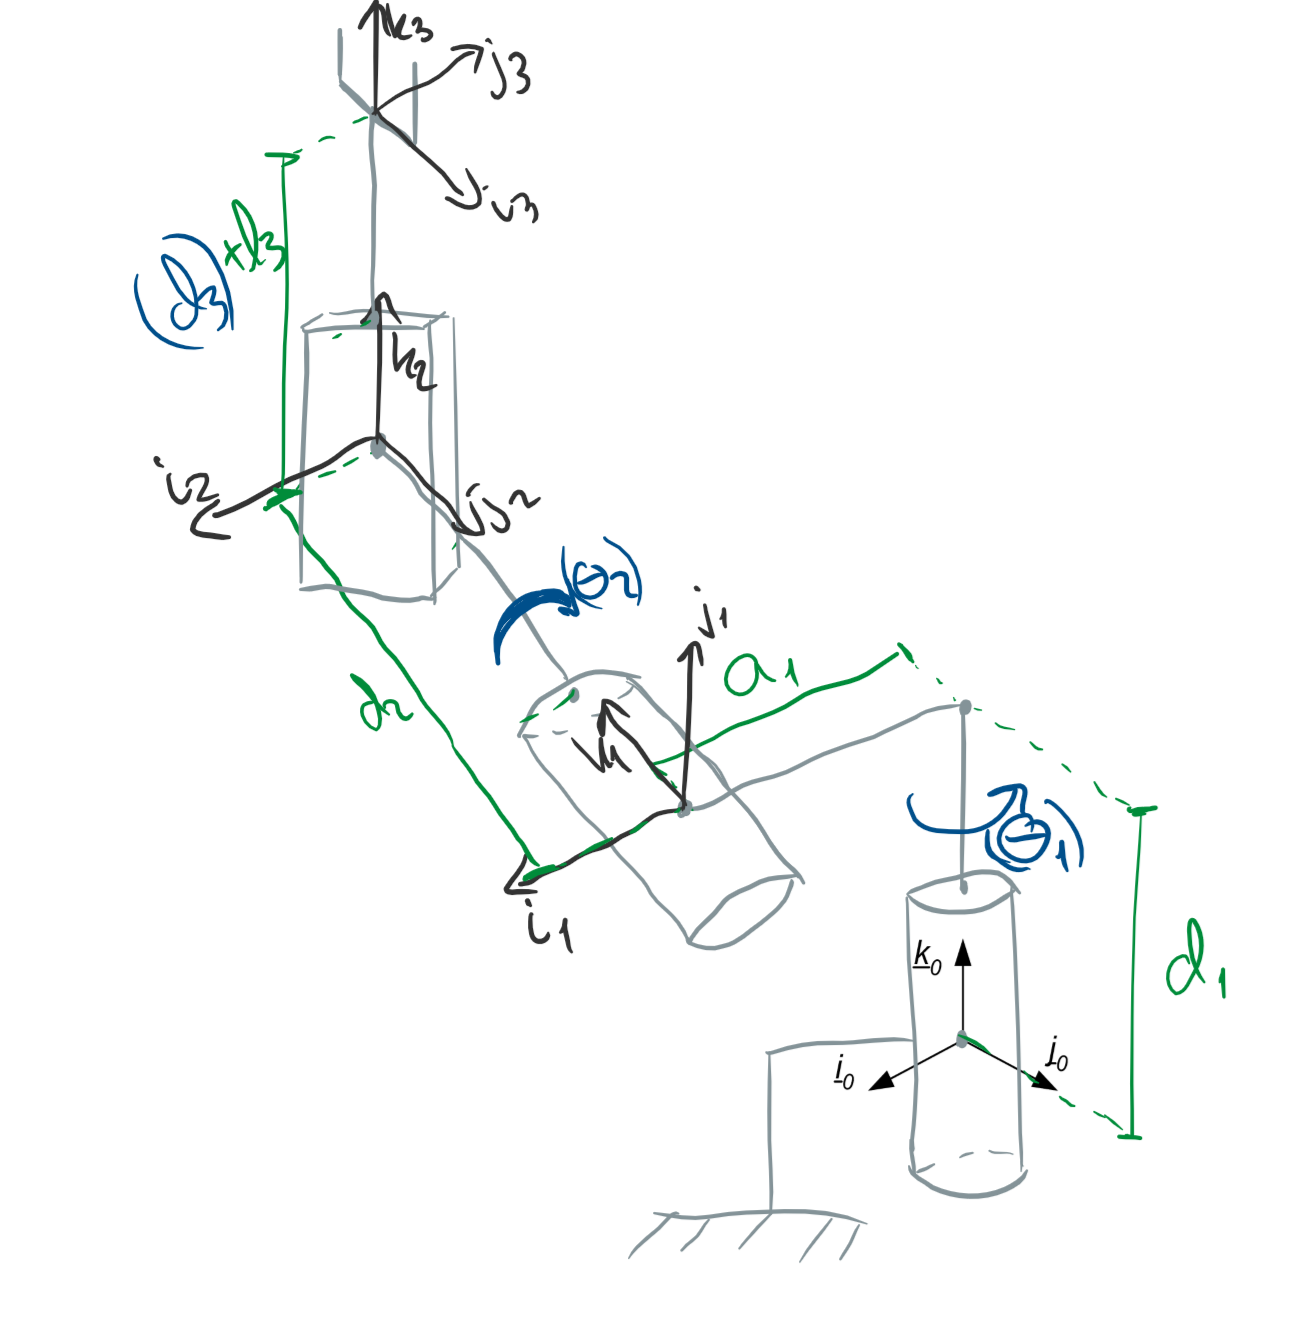 k3
j3
i3
(d3)+l3
k2
i2
j2
(θ2)
j1
a1
d2
k1
(θ1)
i1
k0
d1
j0
i0